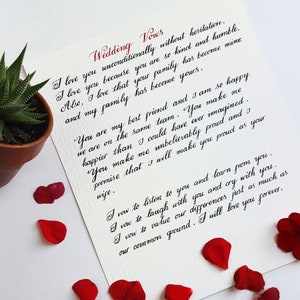 Wedding Vows
I love you unconditionally without hesitation.
I love you because you are so kind and humble.
Also, I love that your family has become mine
and my family has become yours.
You are my best friend and I am so happy
we are on the same team. You make me
happier than I could have ever imagined.
You make me unbelievably proud and I
promise that I will make you proud as your
wife.
I vow to listen to you and learn from you.
I vow to laugh with you and cry with you.
I vow to value our differences just as much as
our common ground. I will love you forever.